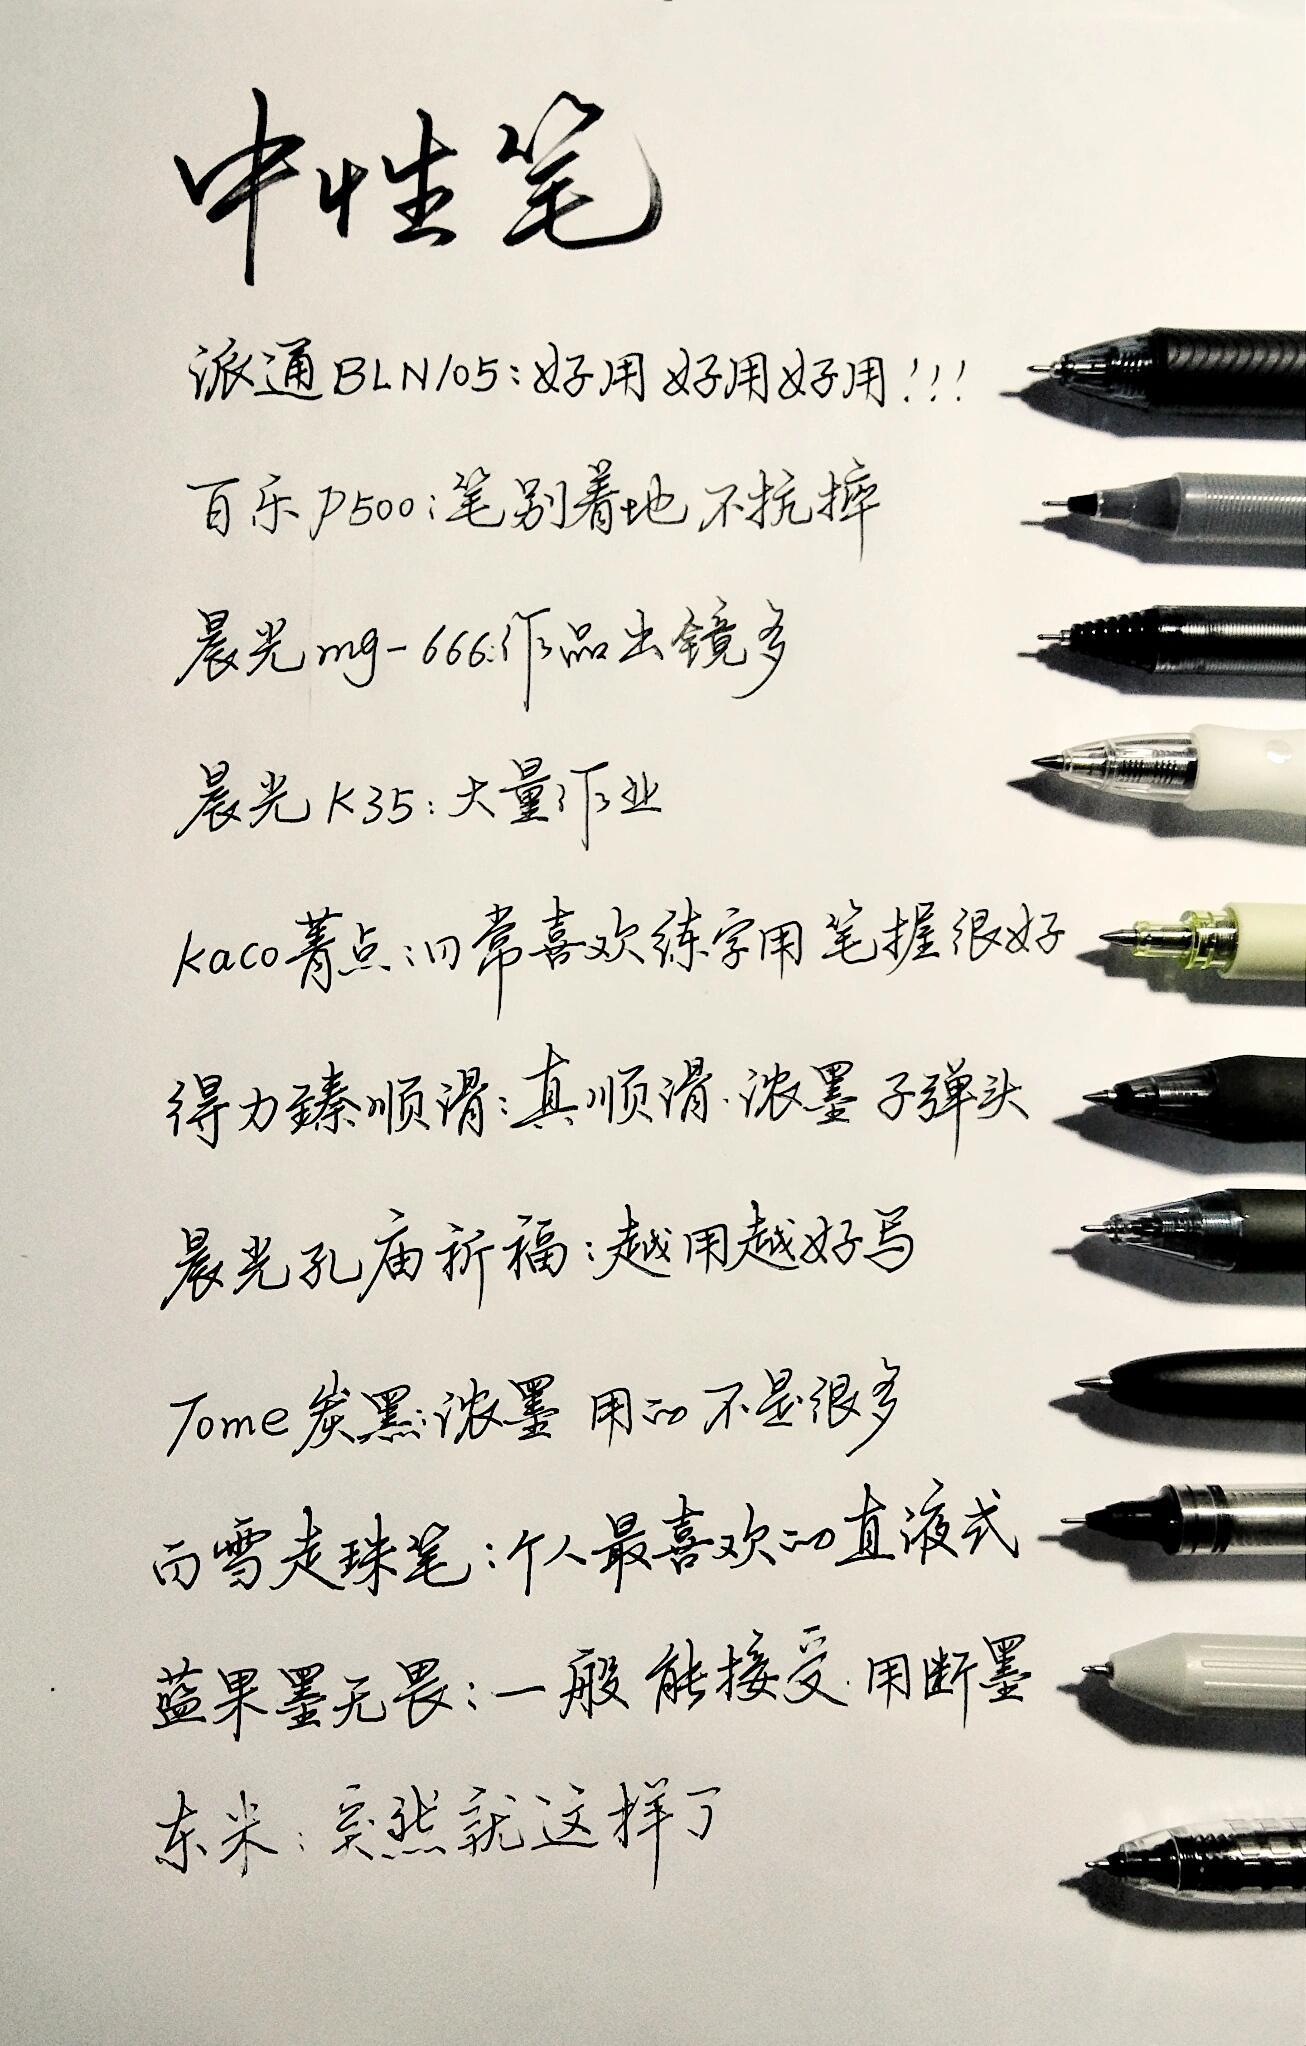 中性笔
派通BLN105:好用好用好用!!!
百乐P500:笔别着地 不抗摔
晨光mg-666:作品出镜多
晨光K35:大量作业
kaco菁点:日常喜欢练字用 笔握很好
得力臻顺滑:真顺滑.浓墨 子弹头
晨光孔庙祈福:越用越好写
Tome炭黑:浓墨 用的不是很多
白雪走珠笔:个人最喜欢的直液式
蓝果墨无畏:一般能接受.用断墨
东米:突然就这样了